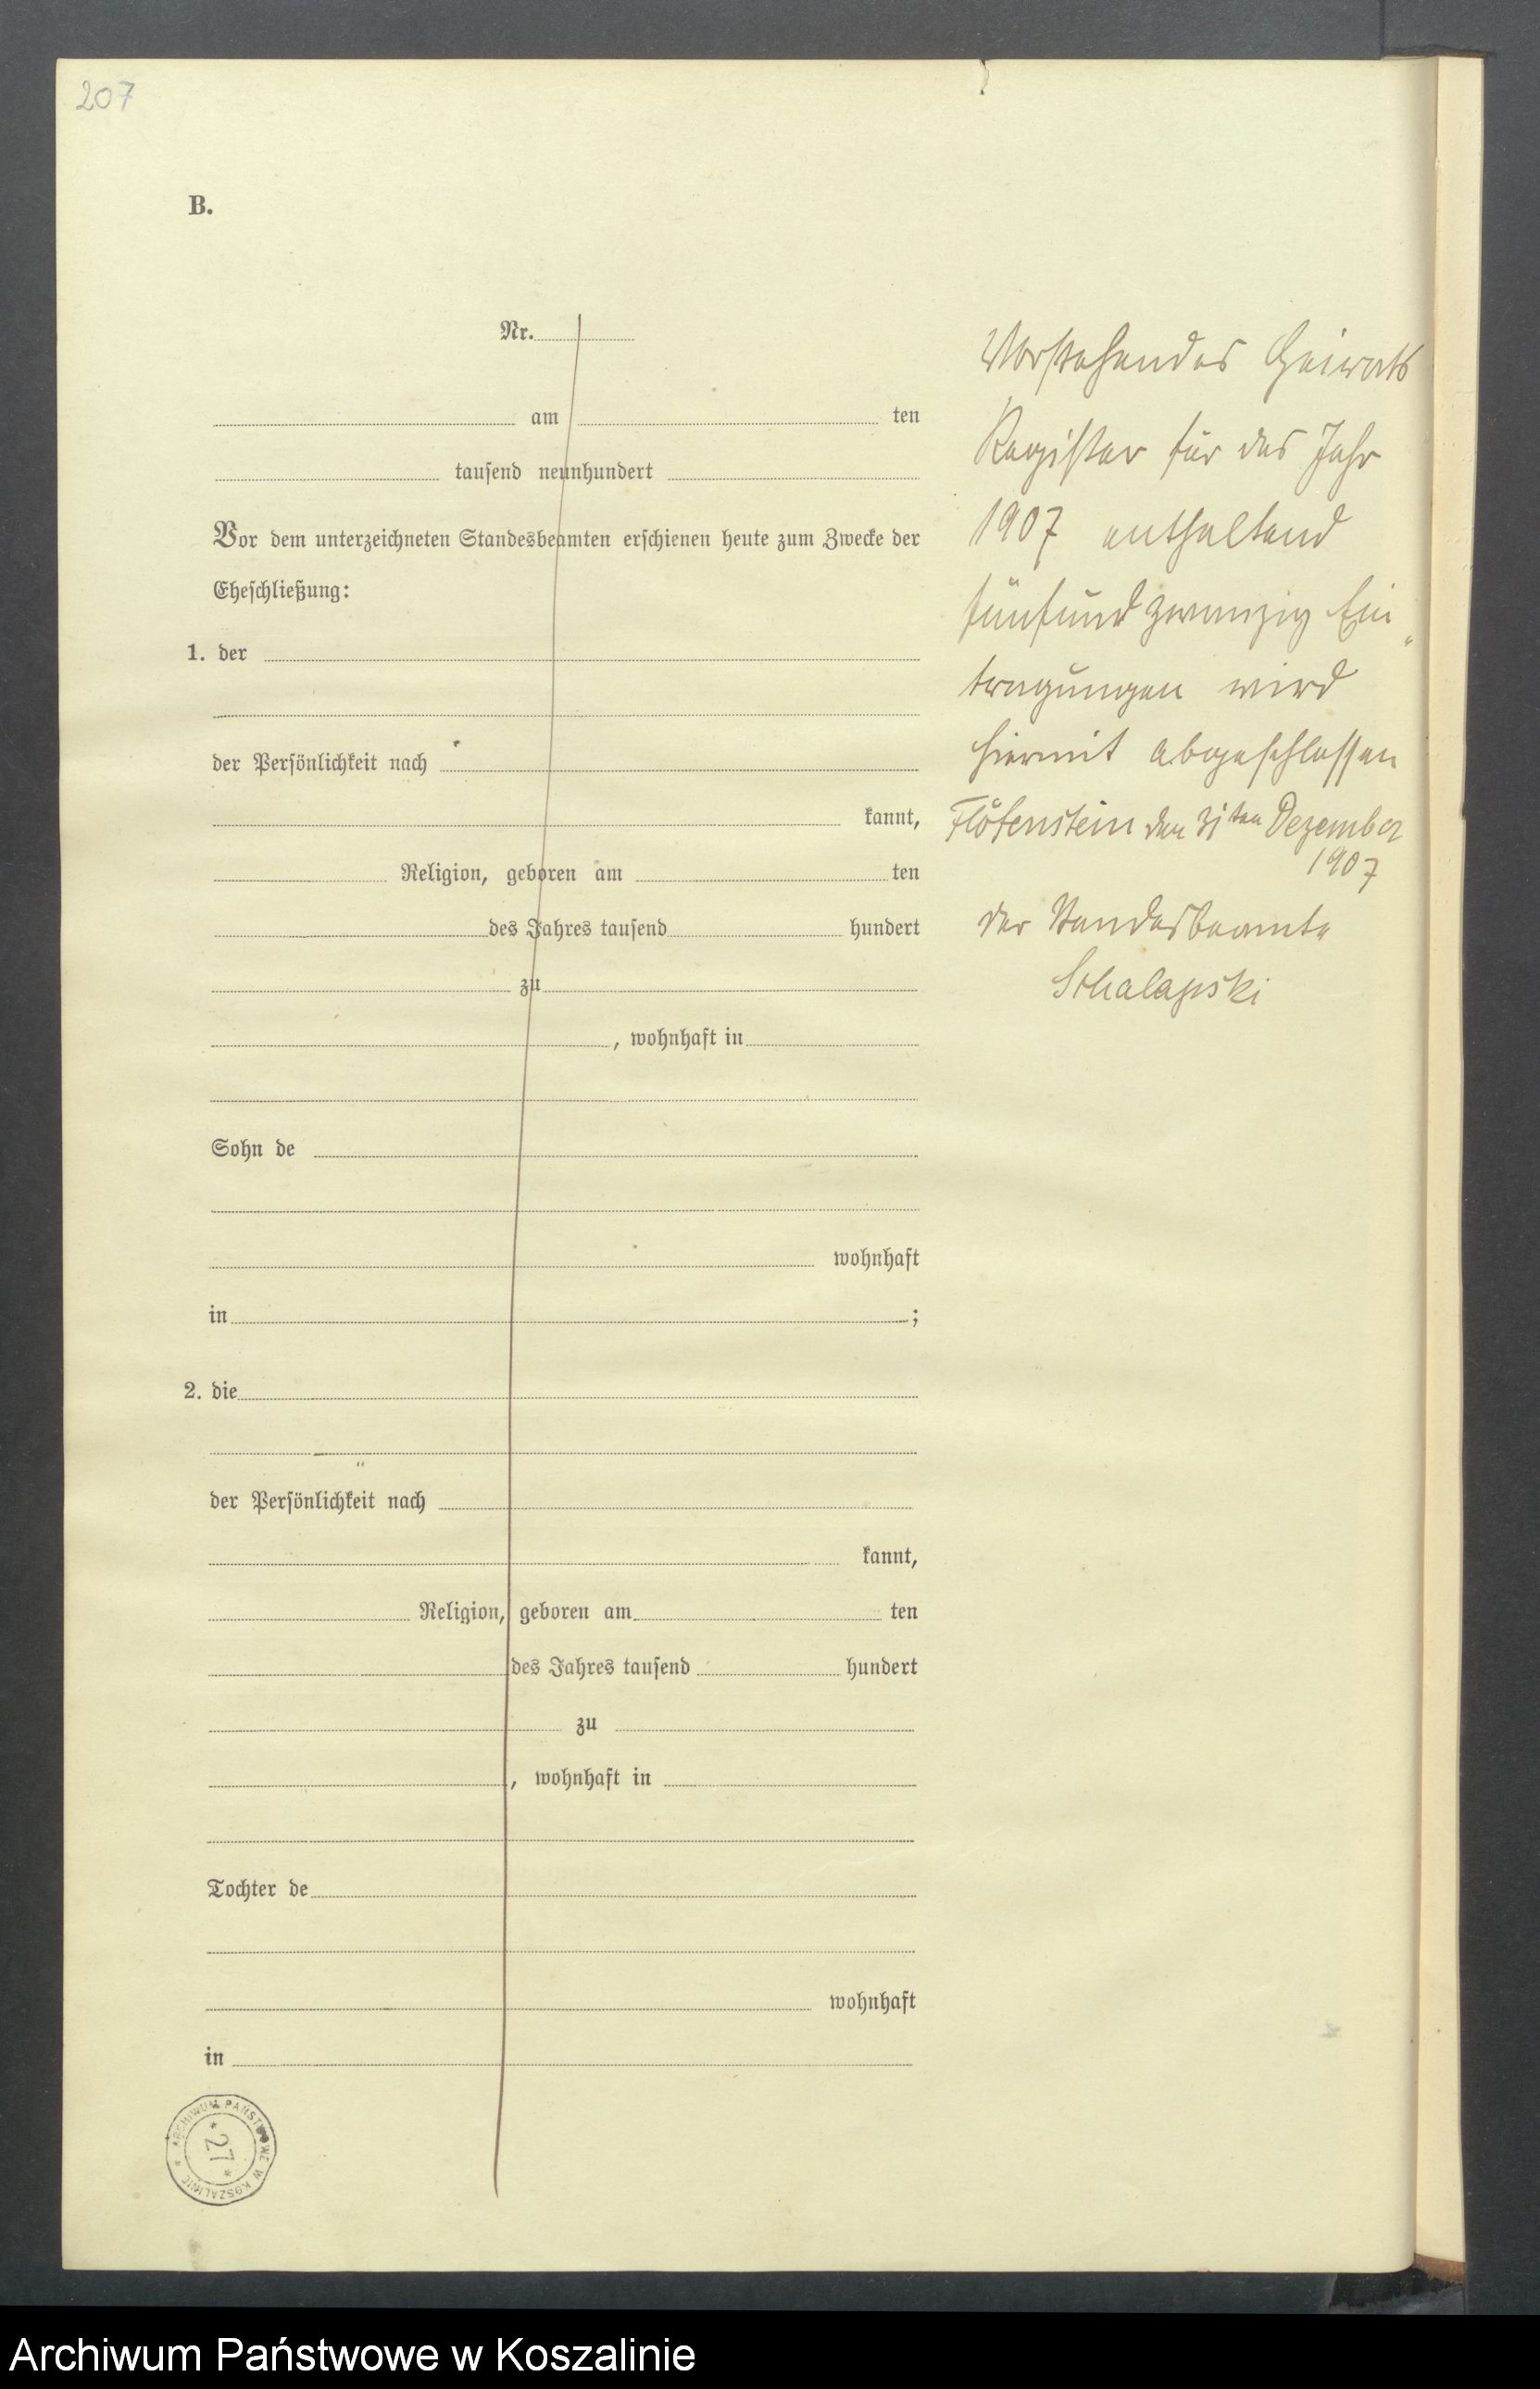 207
B.
Nr.
am ten
tausend neunhundert
Vor dem unterzeichneten Standesbeamten erschienen heute zum Zwecke der
Eheschließung:
1. der
der Persönlichkeit nach
kannt,
Religion, geboren am ten
des Jahres tausend hundert
zu
, wohnhaft in
Sohn de
wohnhaft
in ;
2. die
der Persönlichkeit nach
kannt,
Religion, geboren am ten
des Jahres tausend hundert
zu
, wohnhaft in
Tochter de
wohnhaft
in
Vorstehendes Heirats
Register für das Jahr
1907 enthaltend
fünfundzwanzig Ein„
tragungen wird
hiermit abgeschlossen
Flötenstein den 31ten Dezember
1907
der Standesbeamte
ARCHIWUM PAŃSTWOWE W KOSZALINIE
* 27 *
Archiwum Państwowe w Koszalinie